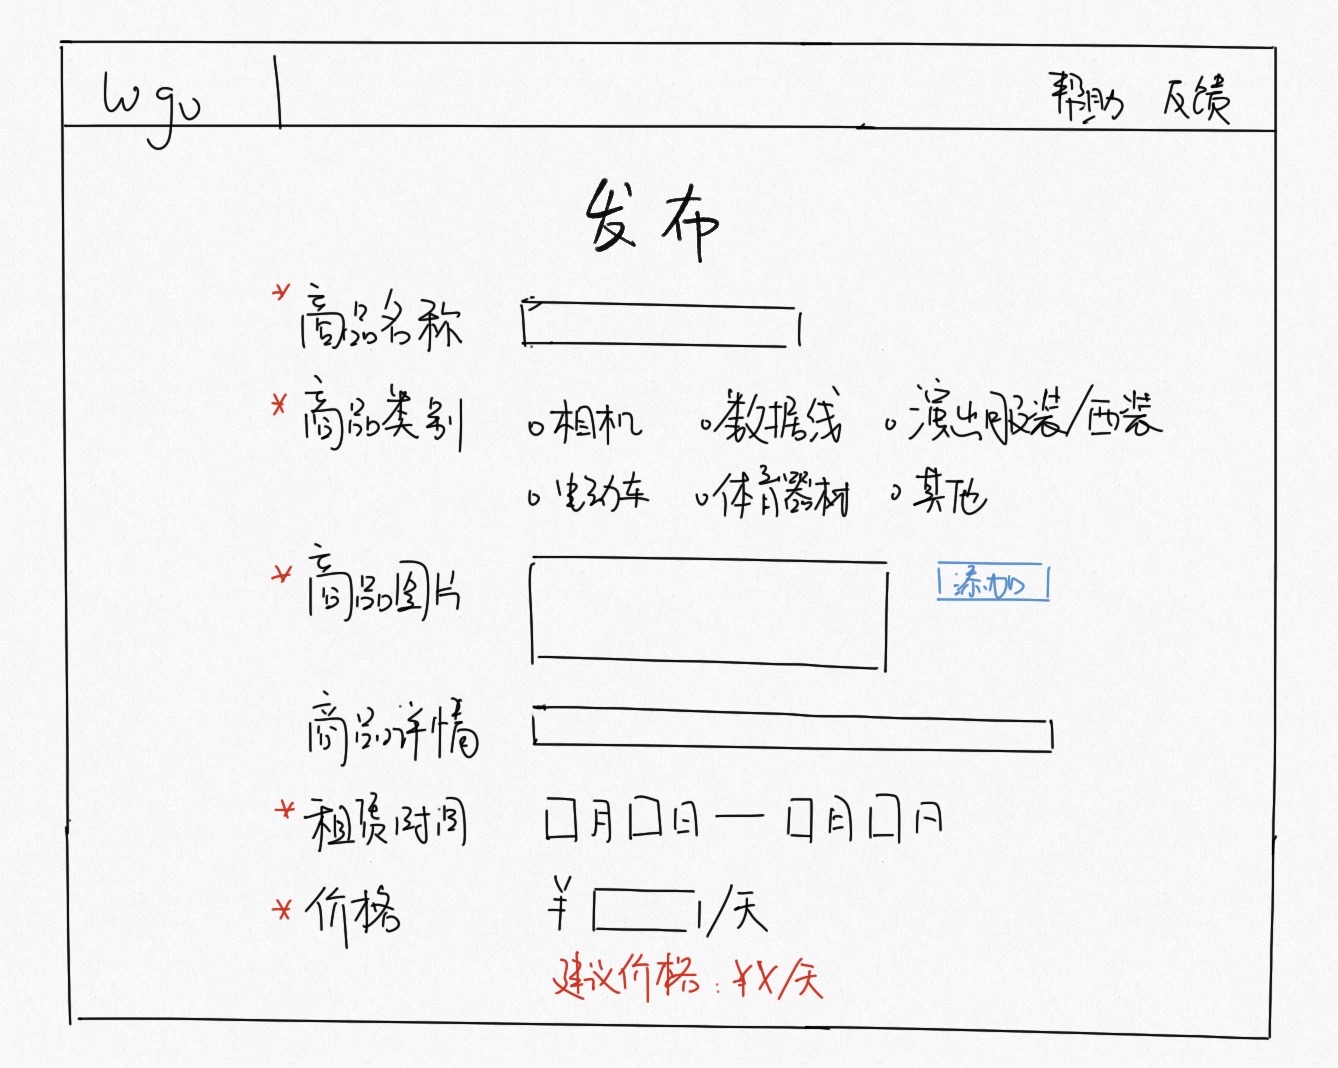 logo 帮助 反馈
发布
* 商品名称
* 商品类别 相机 数据线 演出服装/西装
电动车 体育器材 其他
* 商品图片 添加
商品详情
* 租赁时间 月 日 — 月 日
* 价格 ¥ /天
建议价格:¥X/天